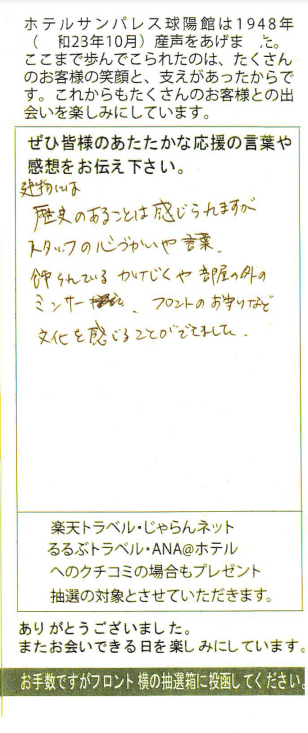 ホテルサンパレス球陽館は1948年
( 和23年10月)産声をあげま た。
ここまで歩んでこられたのは、たくさん
のお客様の笑顔と、支えがあったからで
す。これからもたくさんのお客様との出
会いを楽しみにしています。
ぜひ皆様のあたたかな応援の言葉や
感想をお伝え下さい。
建物には
歴史のあることは感じられますが
スタッフの心づかいや言葉、
飾らんでいる かけじくや 部屋の外の
ミンサー 、フロントのお守りなど
文化を感じることができました。
楽天トラベル・じゃらんネット
るるぶトラベル・ANA@ホテル
へのクチコミの場合もプレゼント
抽選の対象とさせていただきます。
ありがとうございました。
またお会いできる日を楽しみにしています。
お手数ですがフロント横の抽選箱に投函してください。